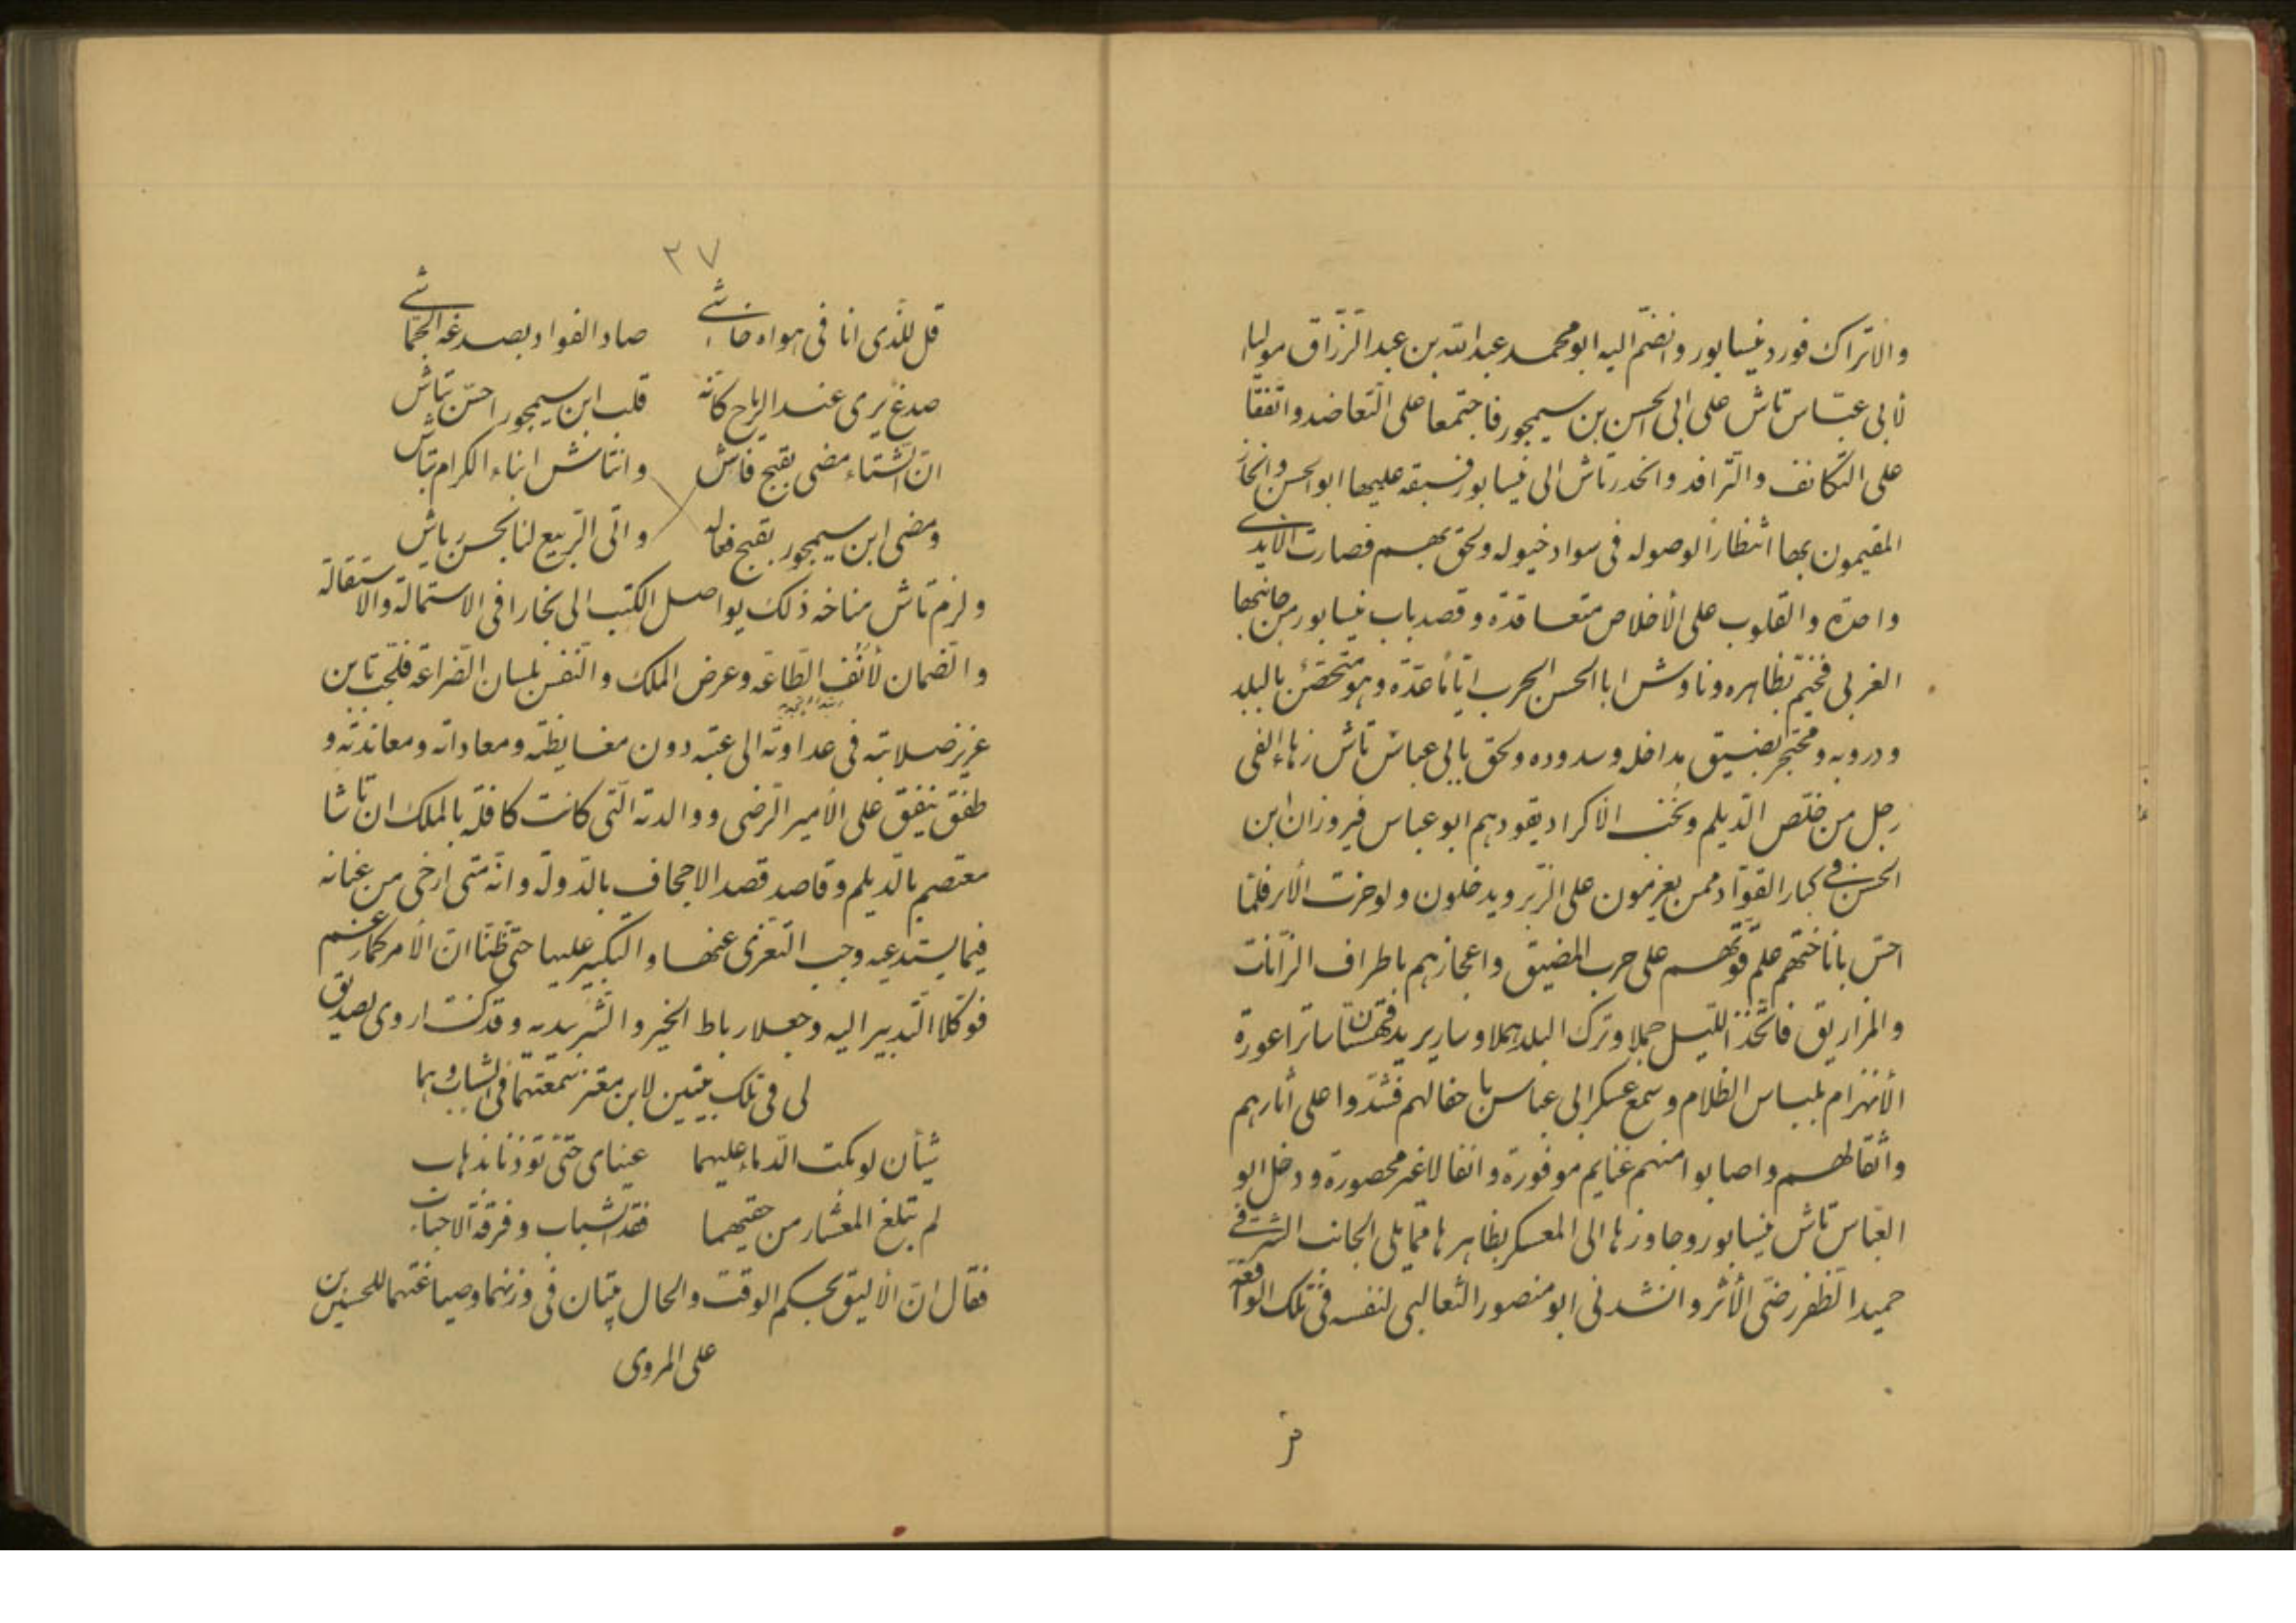 والاتراك فورد نيسابور وانضمّ اليه ابو محمد عبد الله بن عبد الرّزّاق مواليا
لأبى عبّاس تاش على ابى الحسن بن سيمجور فاجتمعا على التّعاضد واتّفقا
على التكانف والتّرافد وانحدر تاش الى نيسابور فسبقه عليها ابو الحسن وانحاز
المقيمون بها انتظاراً لوصوله فى سواد خيوله ولحق بهم فصارت الأيدى
واحدة والقلوب على الأخلاص متعاقدة وقصد باب نيسابور من جانبها
الغربى فخيّم بظاهره وناوش ابا الحسن الحرب ايّاماً عدّة وهو متحصّن بالبلد
ودروبه ومحتجر بضيق مداخله وسدوده ولحق بابى عباس تاش زهاء الفى
رجل من خلّص الدّيلم ونخب الاكراد يقودهم ابو عباس فيروزان بن
الحسن فى كبار القوّاد ممن يعزمون على الزّبر ويدخلون ولو خرت الأبر فلمّا
احسّ باناختهم علم قوّتهم على حرب المضيق واعجازهم باطراف الزّانات
والمزاريق فاتّخذ اللّيل جملا وترك البلد هملا وسار يريد قهستان ساترا عورة
الأنهزام بلباس الظلام وسمع عسكر ابى عباس باجفالهم فشدّوا على آثارهم
واثقالهم واصابوا منهم غنايم موفورة وانفالا غير محصورة ودخل ابو
العبّاس تاش نيسابور وجاوزها الى المعسكر بظاهرها ممّا يلى الجانب الشرقى
حميد الظفر رضىّ الأثر وانشدنى ابو منصور الثّعالبى لنفسه فى تلك الواقعة
٣٧
قل للّذى انا فى هواه خاشى صاد الفواد بصدغه الجمّاشى
صدغ يرى عند الرياح كانّه قلب ابن سيمجور احسّ بتاش
انّ الشّتاء مضى بقبح فاش وانتاش ابناء الكرام بتاش
ومضى ابن سيمجور بقبح فعاله واتى الرّبيع لنا بحسن رياش
ولزم تاش مناخه ذلك يواصل الكتب الى بخارا فى الاستمالة والاستقالة
والضمان لأنف الطّاعة وعرض الملك والنّفس بلسان الضّراعة فلجّ بابن
عزيز صلابته فى عداوته الى عتبه دون مغايظته ومعاداته ومعاندته و
طفق ينفق على الأمير الرّضى ووالدته الّتى كانت كافلة بالملك ان تاشا
معتصم بالدّيلم وقاصد قصد الاجحاف بالدّولة وانّه متى ارخى من عنانه
فيما يستدعيه وجب التعزّى عنها والتكبير عليها حتّى ظنّا انّ الأمر كما زعم
فوكّلا التّدبير اليه وجعلا رباط الخير والشّر بيديه وقد كنت اروى لصديق
لى فى تلك بيتين لابن معتز سمعتهما فى الشباب وهما
شيأن لو بكت الدّماء عليهما عيناى حتّى توذنا بذهاب
لم تبلغ المعشار من حقّيهما فقد الشباب وفرقة الاحباب
فقال انّ الأليق بحكم الوقت والحال بيتان فى وزنهما وصياغتهما للحسين بن
على المروى